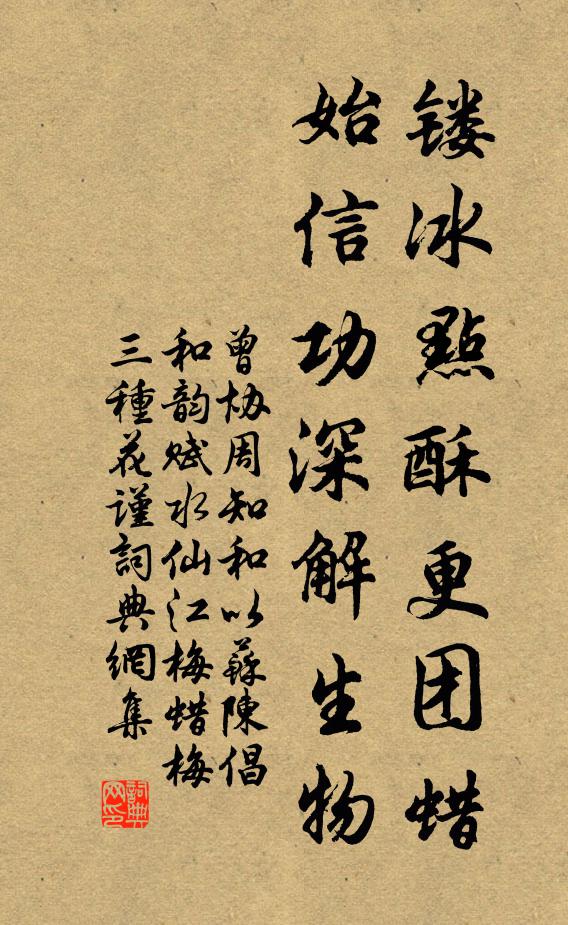 镂冰點酥更团蜡
始信功深解生物
曾协周知和以蘇陳倡
和韵赋水仙江梅蜡梅
三種花谨詞典網集
詞典
网印